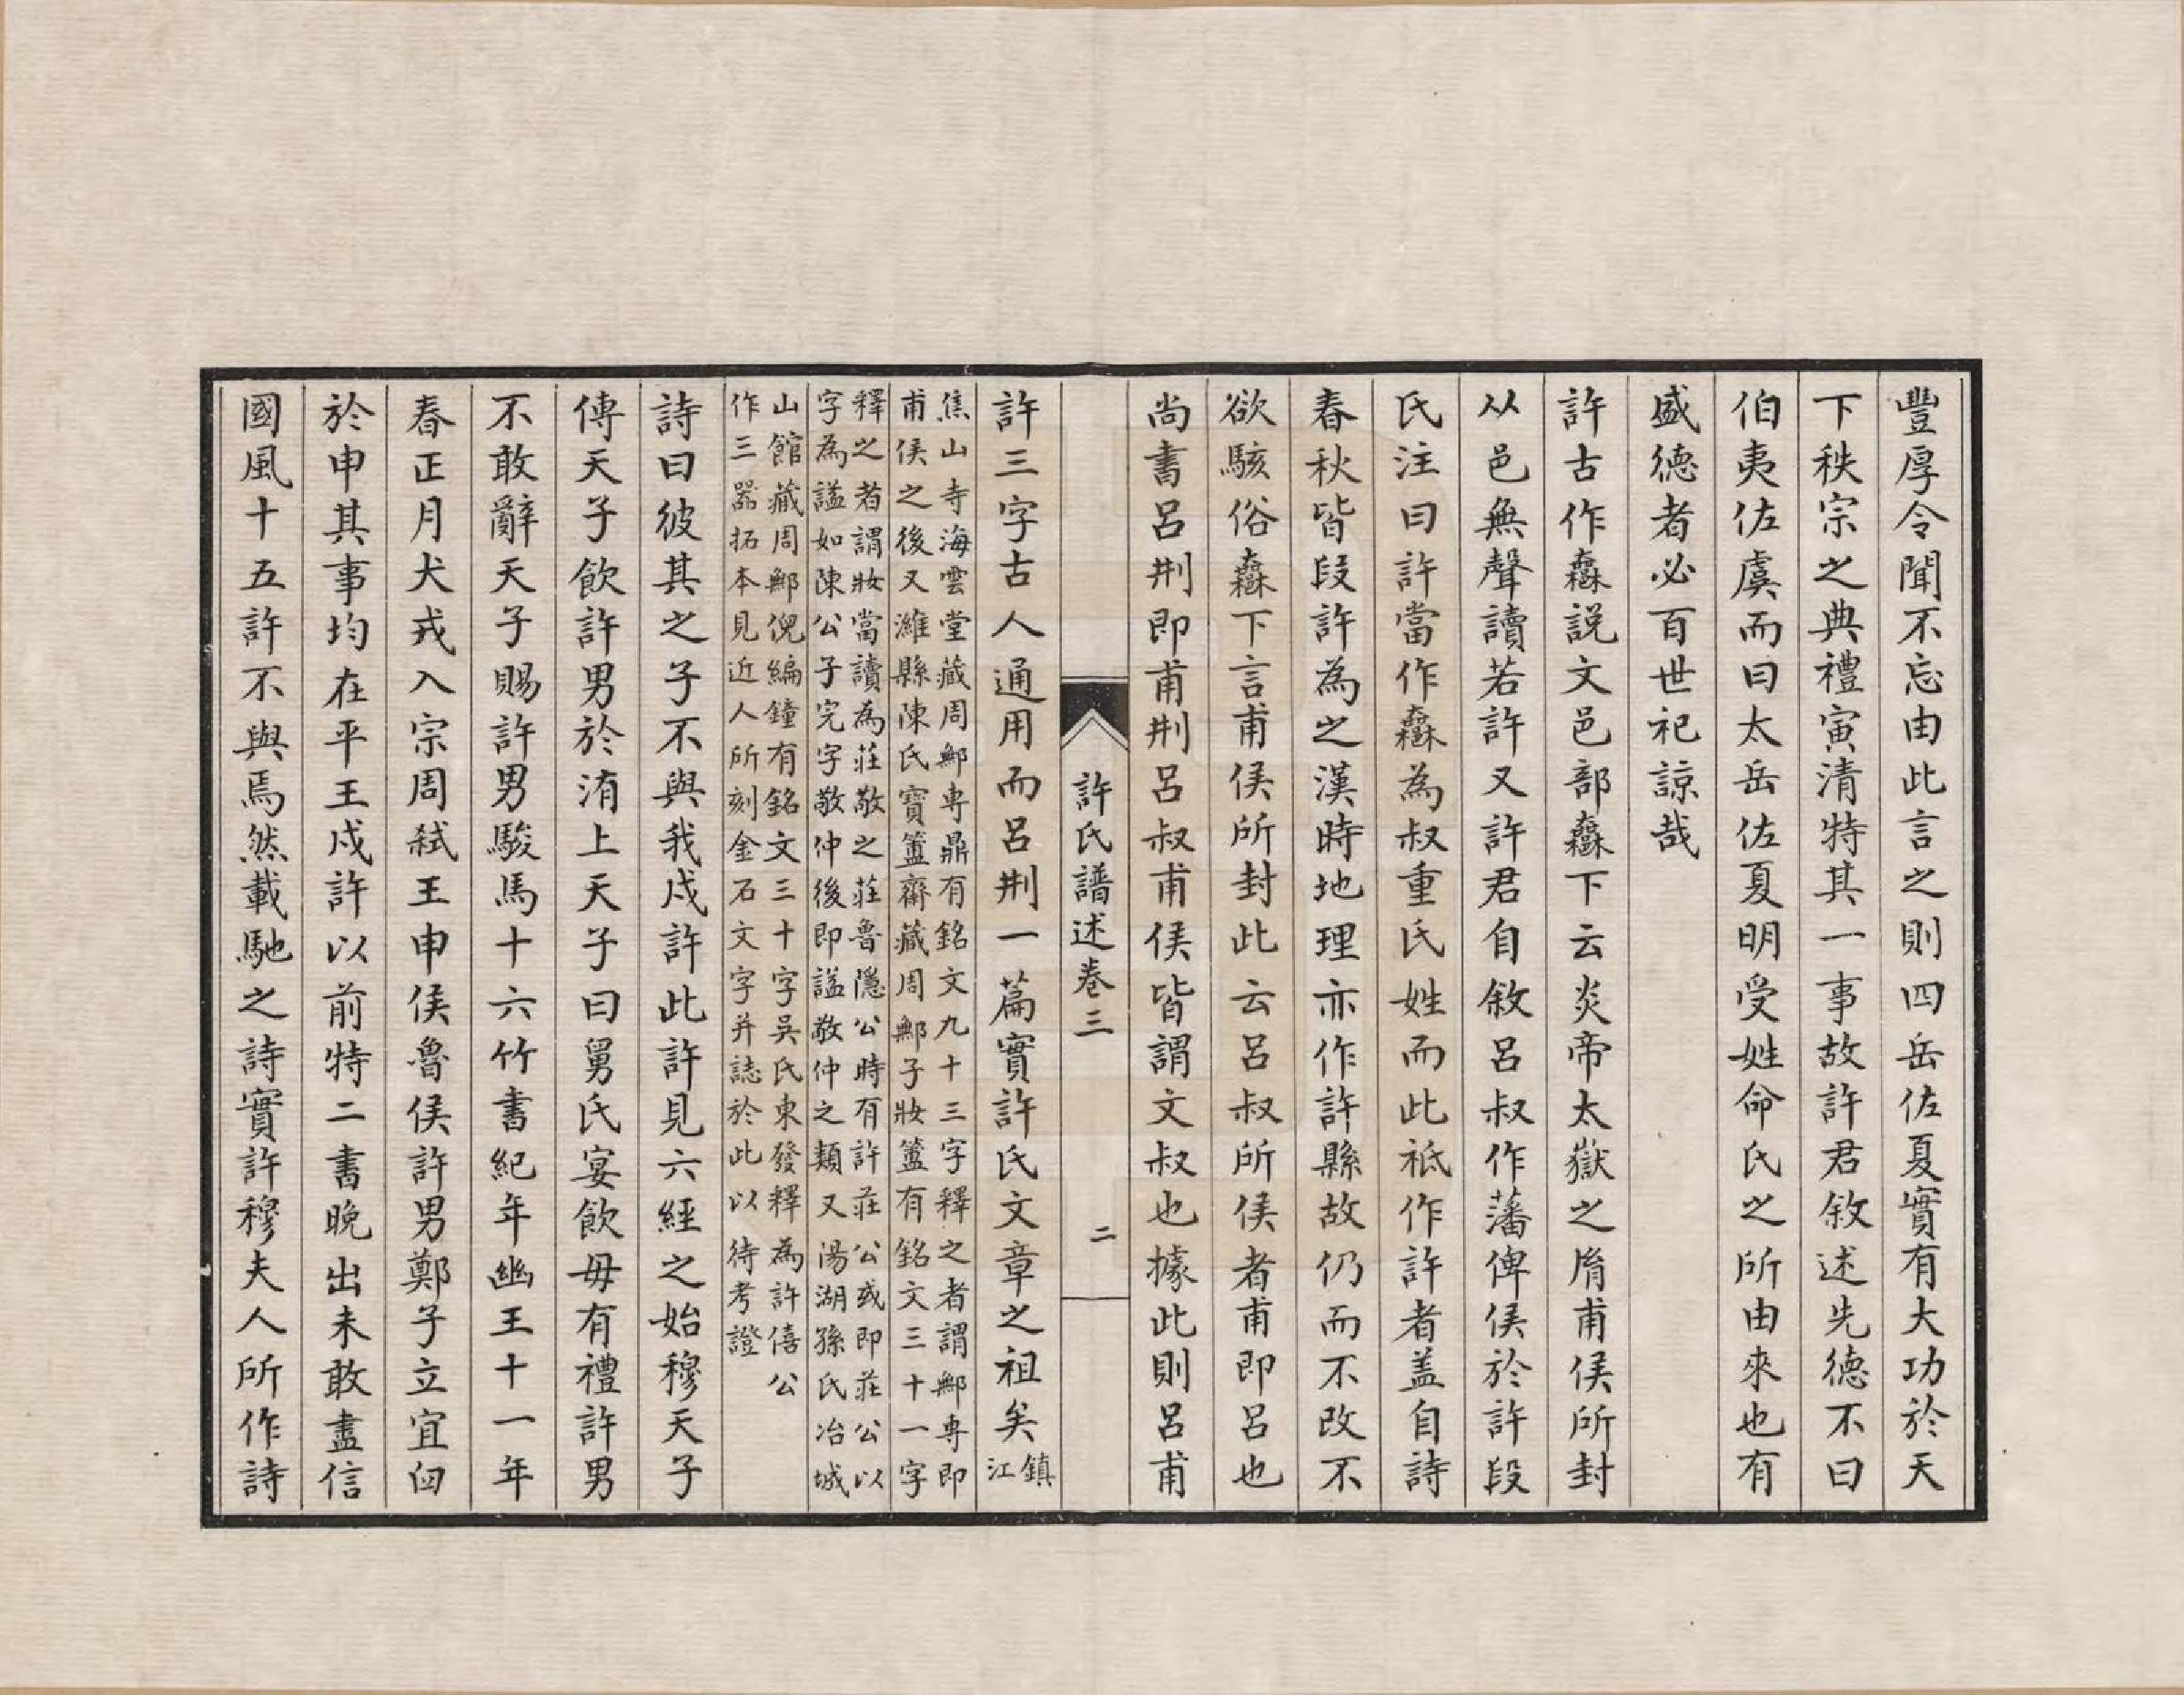 豐厚令聞不忘由此言之則四岳佐夏實有大功於天
下秩宗之典禮寅清特其一事故許君敘述先德不曰
伯夷佐虞而曰太岳佐夏明受姓命氏之所由來也有
盛德者必百世祀諒哉
許古作鄦説文邑部鄦下云炎帝太嶽之𦙍甫侯所封
从邑無聲讀若許又許君自敘呂叔作藩俾侯於許段
氏注曰許當作鄦為叔重氏姓而此祗作許者盖自詩
春秋皆段許為之漢時地理亦作許縣故仍而不改不
欲駭俗鄦下言甫侯所封此云呂叔所侯者甫即呂也
尚書呂荆即甫荆呂叔甫侯皆謂文叔也據此則呂甫
許氏譜述卷三
二
許三字古人通用而呂荆一篇實許氏文章之祖矣鎮
江
焦山寺海雲堂藏周鄦専鼎有銘文九十三字釋之者謂鄦専即
甫侯之後又濰縣陳氏寶簠齋藏周鄦子妝簠有銘文三十一字
釋之者謂妝當讀為莊敬之莊魯隱公時有許莊公或即莊公以
字為謚如陳公子完字敬仲後即謚敬仲之類又陽湖孫氏冶城
山館藏周鄦倪編鐘有銘文三十字吳氏東發釋為許僖公
作三器拓本見近人所刻金石文字并誌於此以待考證
詩曰彼其之子不與我戍許此許見六經之始穆天子
傳天子飲許男於洧上天子曰舅氏宴飲毋有禮許男
不敢辭天子賜許男駿馬十六竹書紀年幽王十一年
春正月犬戎入宗周弑王申侯魯侯許男鄭子立宜臼
於申其事均在平王戍許以前特二書晚出未敢盡信
國風十五許不與焉然載馳之詩實許穆夫人所作詩